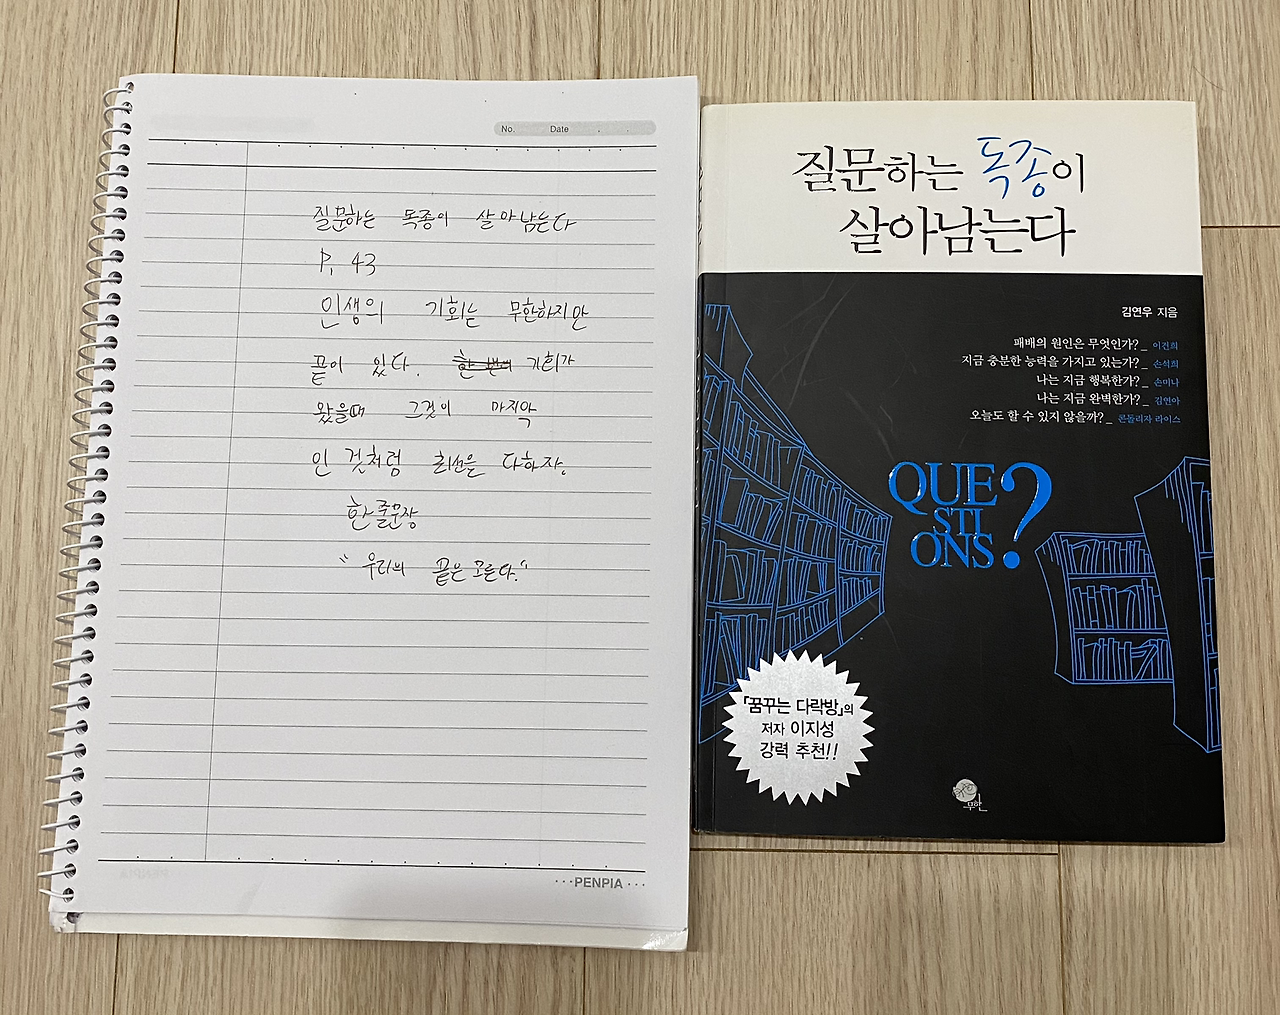 No. Date
질문하는 독종이 살아남는다
P. 43
인생의 기회는 무한하지만
끝이 있다. 한 번의 기회가
왔을때 그것이 마지막
인 것처럼 최선을 다하자.
한줄문장
"우리의 끝은 모른다."
···PENPIA···
질문하는 독종이
살아남는다
김연우 지음
패배의 원인은 무엇인가?_ 이건희
지금 충분한 능력을 가지고 있는가?_ 손석희
나는 지금 행복한가?_ 손미나
나는 지금 완벽한가?_ 김연아
오늘도 할 수 있지 않을까?_ 콘돌리자 라이스
QUE
STI
ONS?
「꿈꾸는 다락방」의
저자 이지성
강력 추천!!
무한